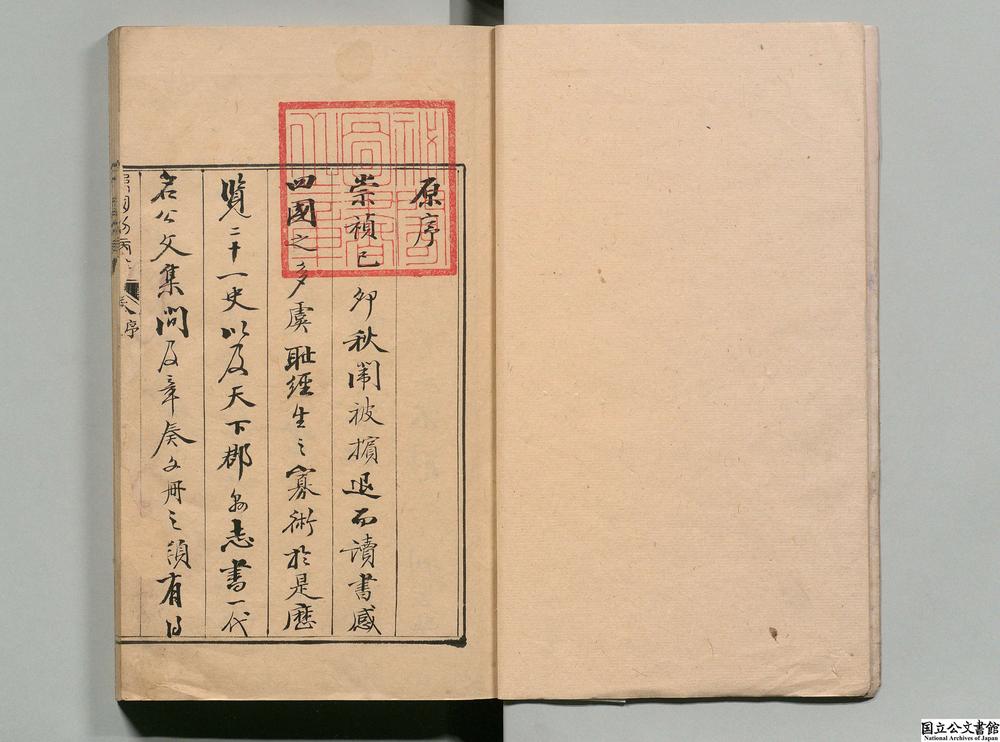 原序
崇禎己卯秋闈被擯退而讀書感
四國之多虞耻經生之寡術於是歷
覽二十一史以及天下郡縣志書一代
名公文集間及章奏文冊之類有得
序
国立公文書館
National Archives of Japan